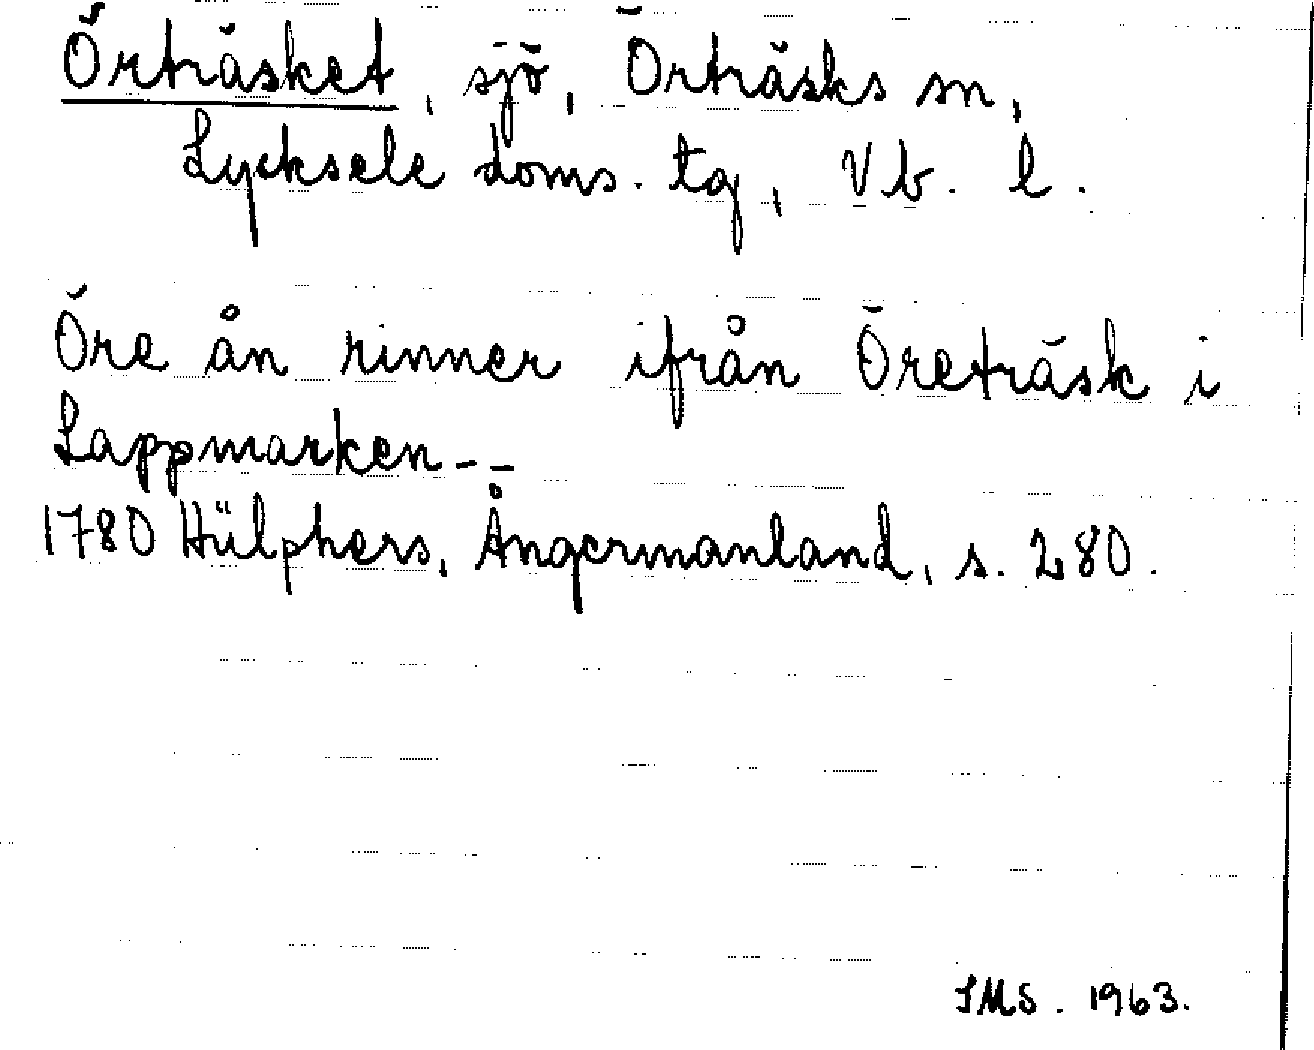 Örträsket, sjö, Örträsks sn,
Lycksele doms. tg, Vb. l.
Öre ån rinner ifrån Öreträsk i
Lappmarken--
1780 Hülphers, Ångermanland, s. 280.
SMS. 1963.